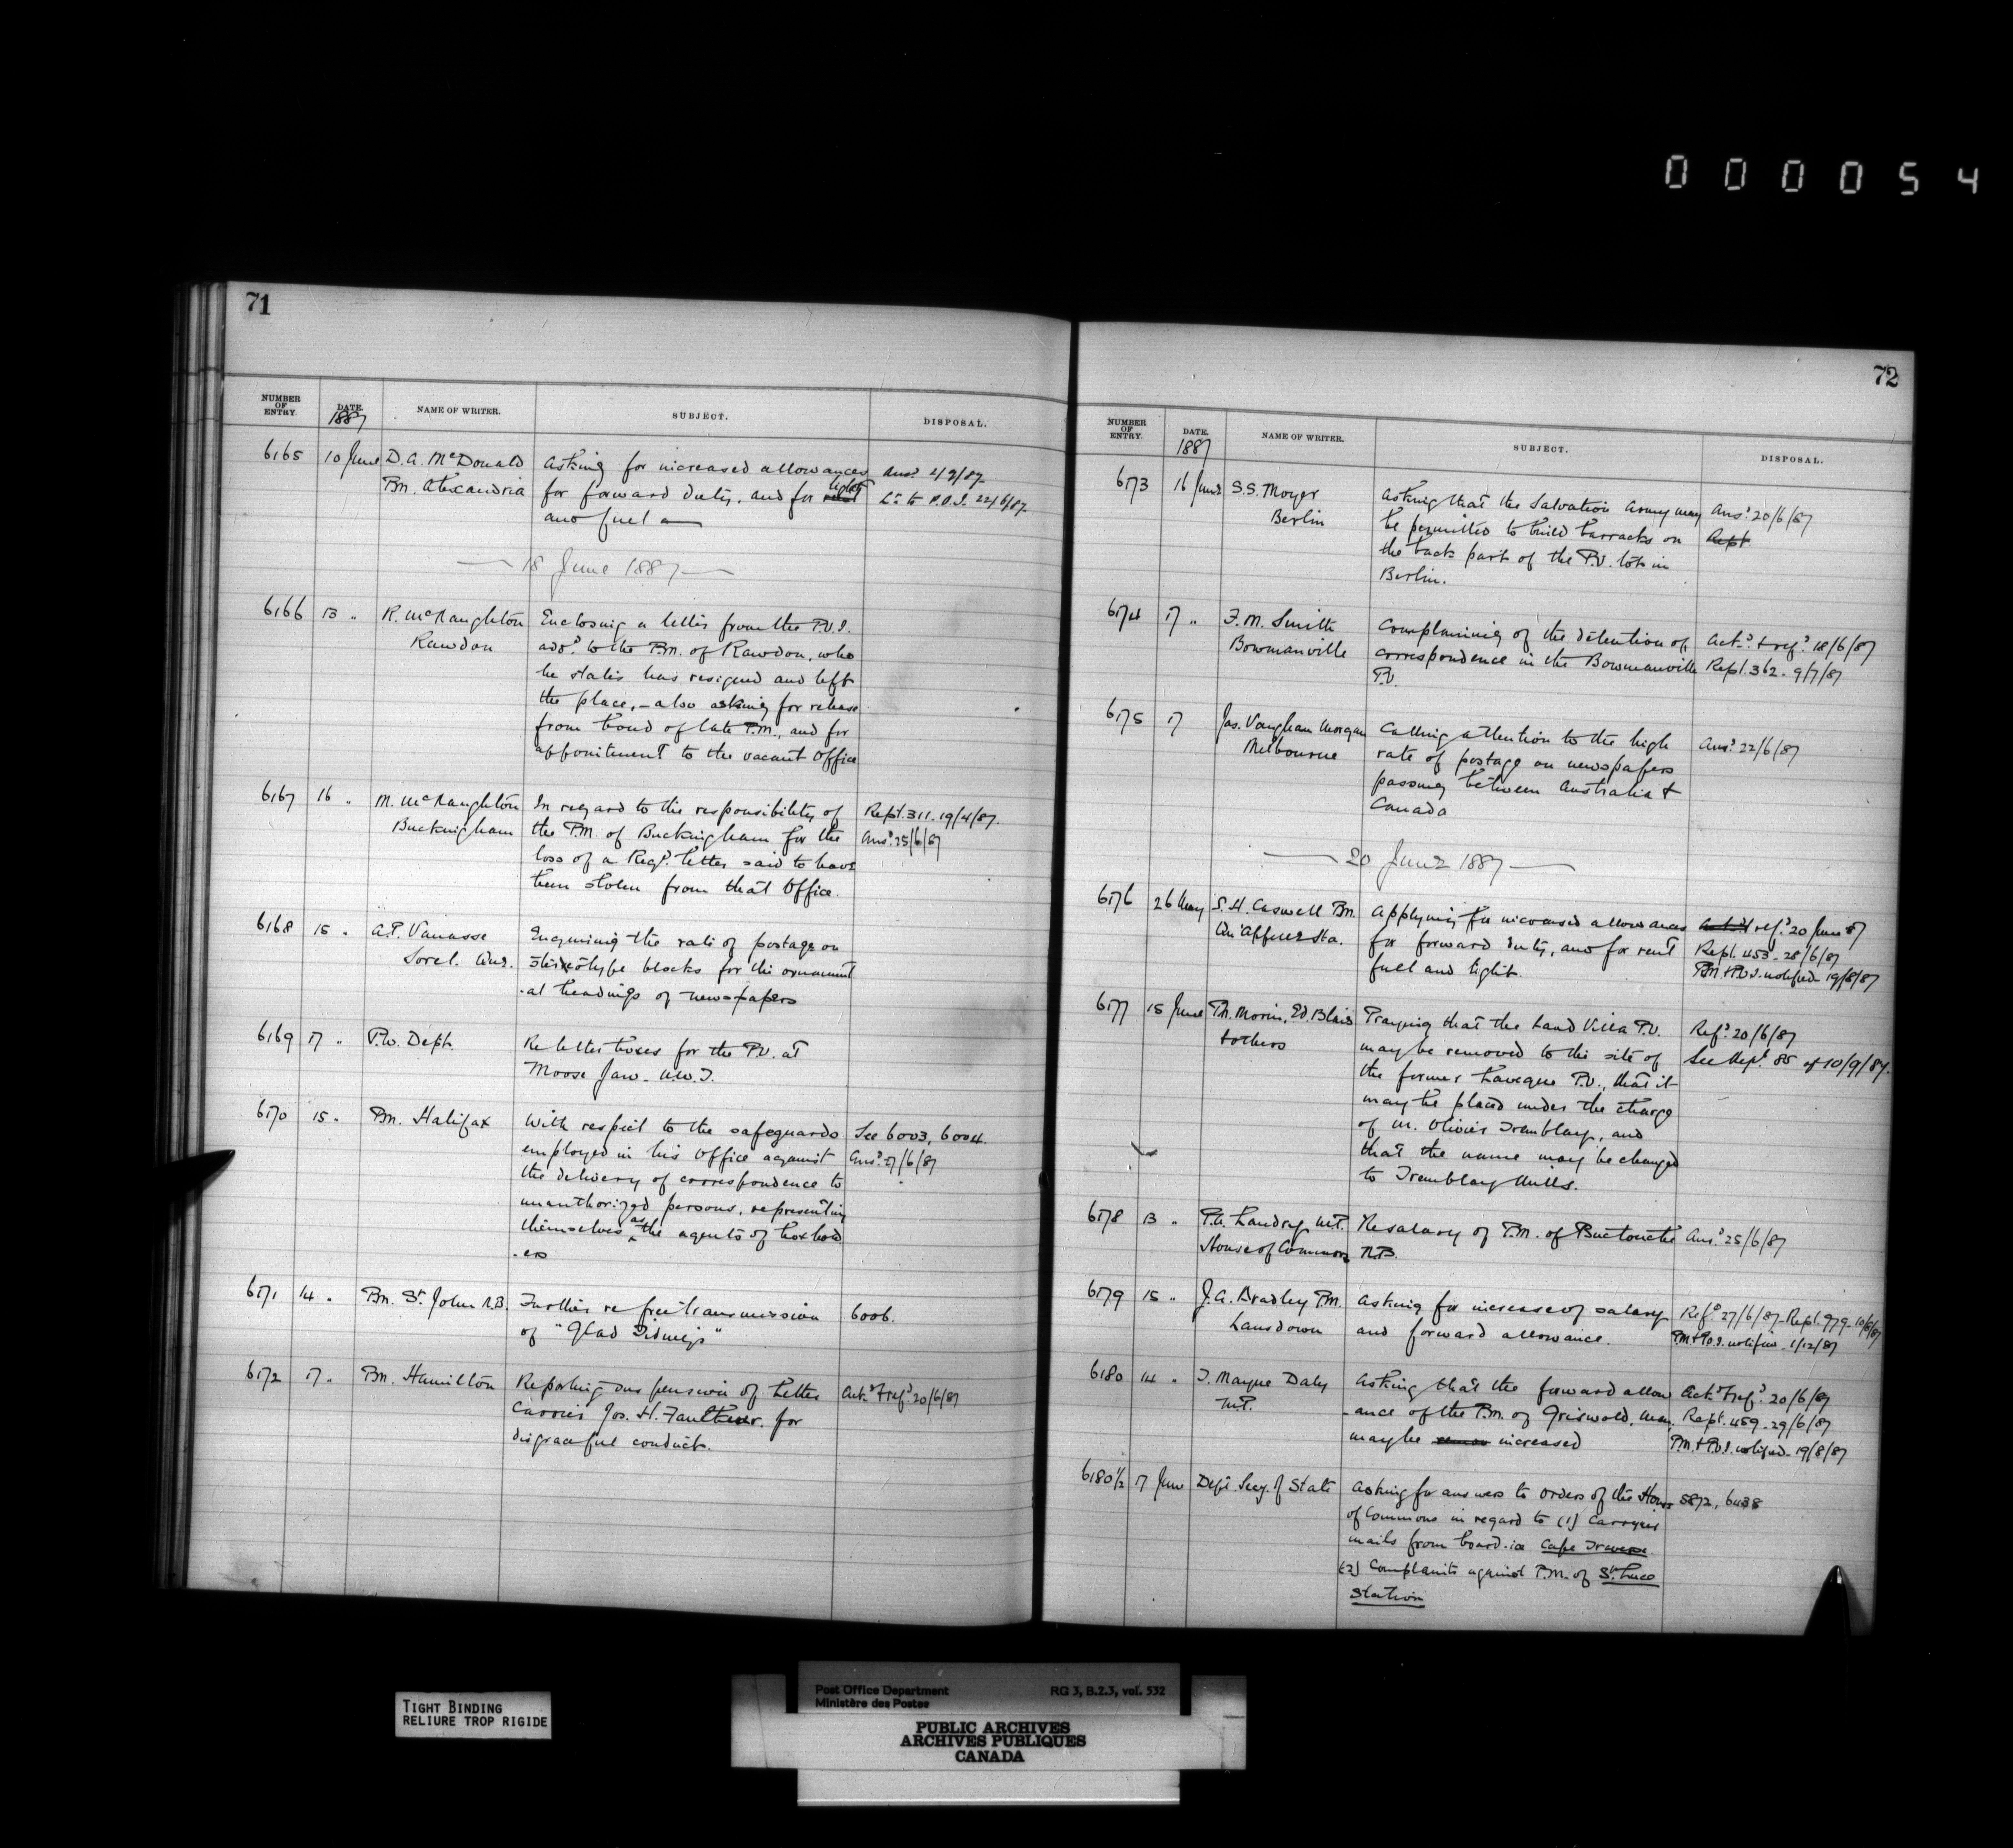 000054
71
NUMBER OF ENTRY. DATE. 1887 NAME OF WRITER. SUBJECT. DISPOSAL.
6165 10 June D. A. McDonald Asking for increased allowances Ansd 4/9/87
Pm. Alexandria for forward duty, and for light Lr to P.O.I. 22/6/87
and fuel
18 June 1887
6166 13 " R. McNaughton Enclosing a letter from the P.O.I.
Rawdon add. to the P.M. of Rawdon, who
he states has resigned and left
the place, - also asking for release
from bond of late P.M., and for
appointment to the vacant Office
6167 16 " M. McNaughton In regard to the responsibility of Rept. 311. 19/4/87.
Buckingham the P.M. of Buckingham for the Ansd 25/6/87
loss of a Regd. letter said to have
been stolen from that Office.
6168 15 " A.P. Vanasse Enquiring the rate of postage on
Sorel. Que. stereotype blocks for the ornament
-al headings of newspapers
6169 17 " P.W. Dept. Re letter boxes for the P.O. at
Moose Jaw. N.W.T.
6170 15 " Pm. Halifax With respect to the safeguards See 6003, 6004.
employed in his Office against Ansd 27/6/87
the delivery of correspondence to
unauthorized persons, representing
themselves as the agents of box hold
-ers
6171 14 " Pm. St. John N.B. Further re free transmission 6006.
of "Glad Tidings"
6172 17 " Pm. Hamilton Reporting suspension of Letter Ackd & refd 20/6/87
Carrier Jos. H. Faulkner. for
disgraceful conduct.
72
NUMBER OF ENTRY. DATE. 1887 NAME OF WRITER. SUBJECT. DISPOSAL.
6173 16 June S.S. Moyer Asking that the Salvation Army may Ansd 20/6/87
Berlin be permitted to build barracks on Rept.
the back part of the P.O. lot in
Berlin.
6174 17 " F.M. Smith Complaining of the detention of Ackd & refd 18/6/87
Bowmanville correspondence in the Bowmanville Rept. 362. 9/7/87
P.O.
6175 17 Jas. Vaughan Morgan Calling attention to the high Ansd 22/6/87
Melbourne rate of postage on newspapers
passing between Australia &
Canada
20 June 1887
6176 26 May S. H. Caswell Pm. Applying for increased allowances refd 20 June 87
Qu'Appelle Sta. for forward duty, and for rent Rept. 453. 28/6/87
fuel and light. Pm & P.O.I. notified 19/8/87
6177 15 June Th. Morin, Ed. Blais Praying that the Land Villa P.O. Refd 20/6/87
& others may be removed to the site of See Rept. 85 of 10/9/87.
the former Laveque P.O., that it
may be placed under the charge
of M. Olivier Tremblay, and
that the name may be changed
to Tremblay Mills.
6178 13 " P.A. Landry M.P. Re salary of P.M. of Buctouche Ansd 25/6/87
House of Commons N.B.
6179 15 " J.A. Bradley P.M. Asking for increase of salary Refd 27/6/87 - Rept. 979 - 10/8/87
Lansdown and forward allowance. P.M & P.O.I. notified - 1/12/87
6180 14 " T. Mayne Daly Asking that the forward allow Ackd & refd 20/6/87
M.P. -ance of the P.M. of Griswold, Man. Rept. 459 - 29/6/87
may be increased P.M. & P.O.I. notified - 19/8/87
6180½ 17 June Dept. Secy. of State Asking for answers to Orders of the House 5872, 6438
of Commons in regard to (1) Carrying
mails from board-ice Cape Traverse
(2) Complaints against P.M. of St. Luce
Station
TIGHT BINDING
RELIURE TROP RIGIDE
Post Office Department RG 3, B.2.3, vol. 532
Ministère des Postes
PUBLIC ARCHIVES
ARCHIVES PUBLIQUES
CANADA